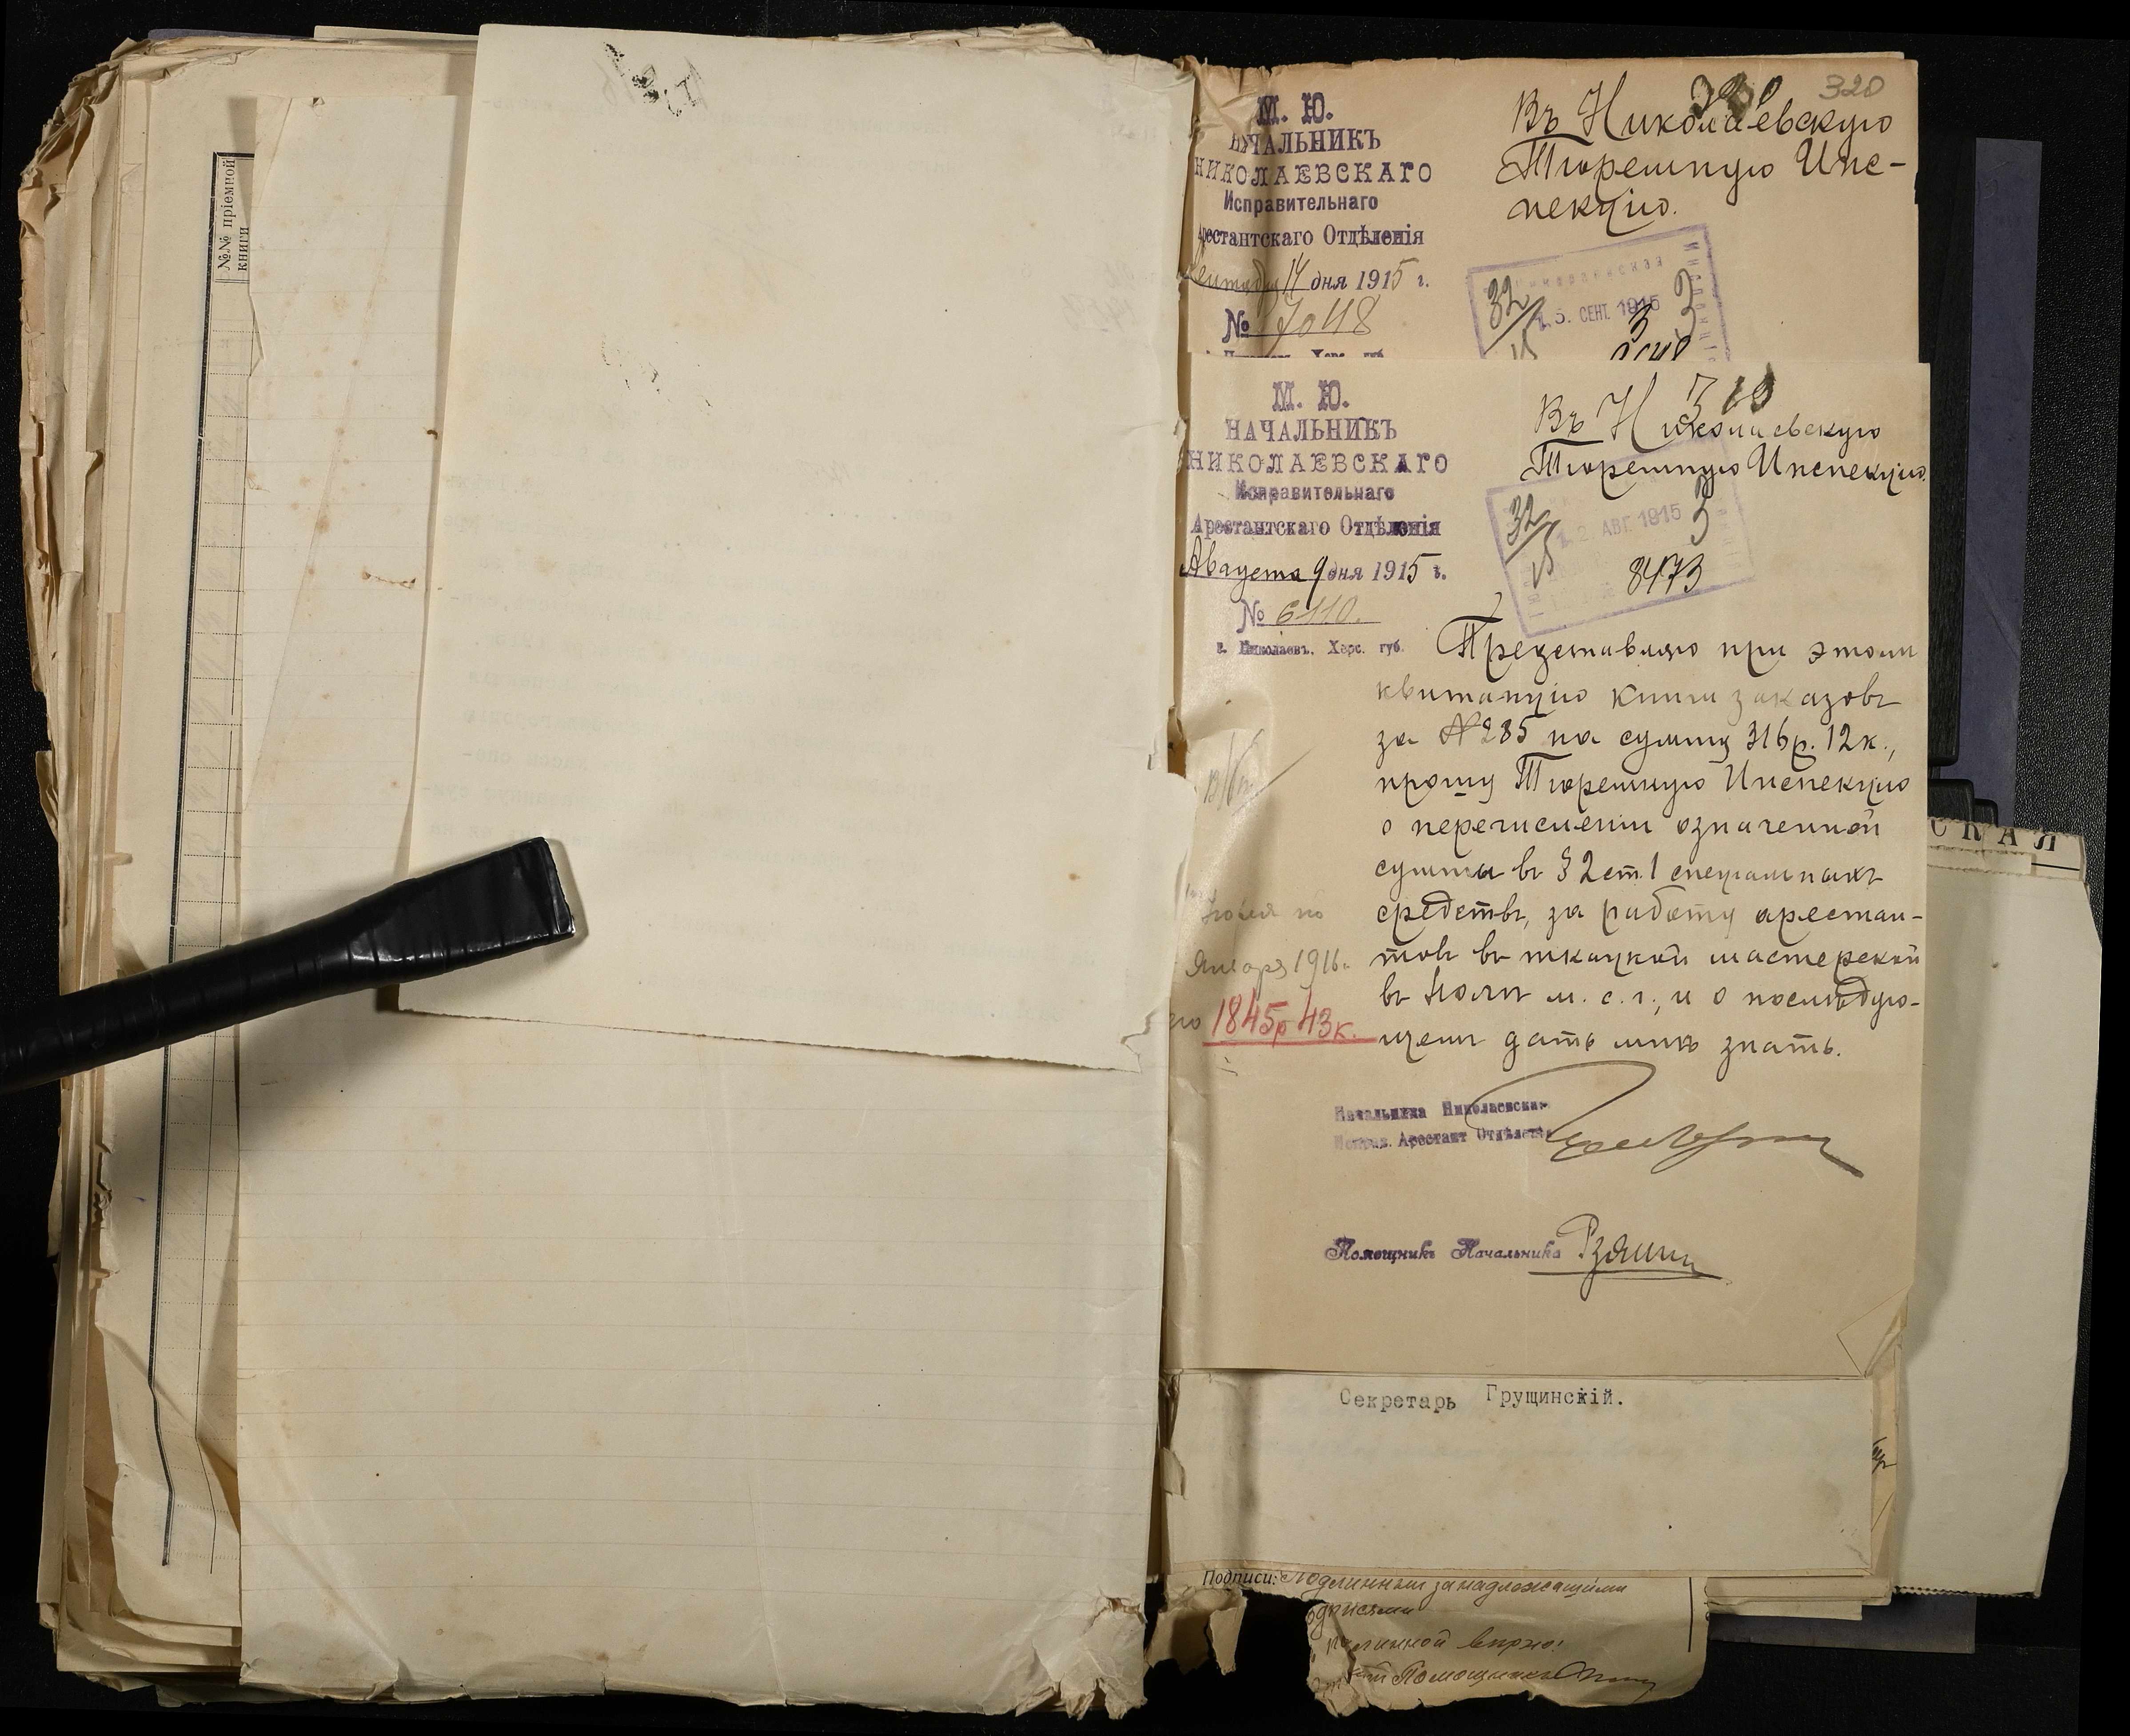 №№ пріемной
книги
320
М. Ю.
НАЧАЛЬНИКЪ
НИКОЛАЕВСКАГО
Исправительнаго
Арестантскаго Отдѣленія
14 дня 1915 г.
№ 7048
Въ Николаевскую
Тюремную Инс-
пекцію.
15 СЕНТ. 1915
32
3
М. Ю.
НАЧАЛЬНИКЪ
НИКОЛАЕВСКАГО
Исправительнаго
Арестантскаго Отдѣленія
Августа 9 дня 1915 г.
№ 6110.
г. Николаевъ, Херс. губ.
Въ Николаевскую
Тюремную Инспекцію.
12 АВГ. 1915
32
3
8473
Представляю при этомъ
квитанцію книги заказовъ
за № 285 на сумму 316 р. 12 к.,
прошу Тюремную Инспекцію
о перечисленіи означенной
суммы въ § 2 ст. 1 спеціальныхъ
средствъ, за работу арестан-
товъ въ ткацкой мастерской
въ Іюлѣ м. с. г., и о послѣдую-
щемъ дать мнѣ знать.
по
Января 1916 г.
1845 р 43 к.
Начальника Николаевскаго
Исправ. Арестант Отдѣлен
Помощникъ Начальника
Секретарь Грущинскій.
СКАЯ
Подписи: Подлинный за надлежащими
подписями
вѣрно:
Помощникъ